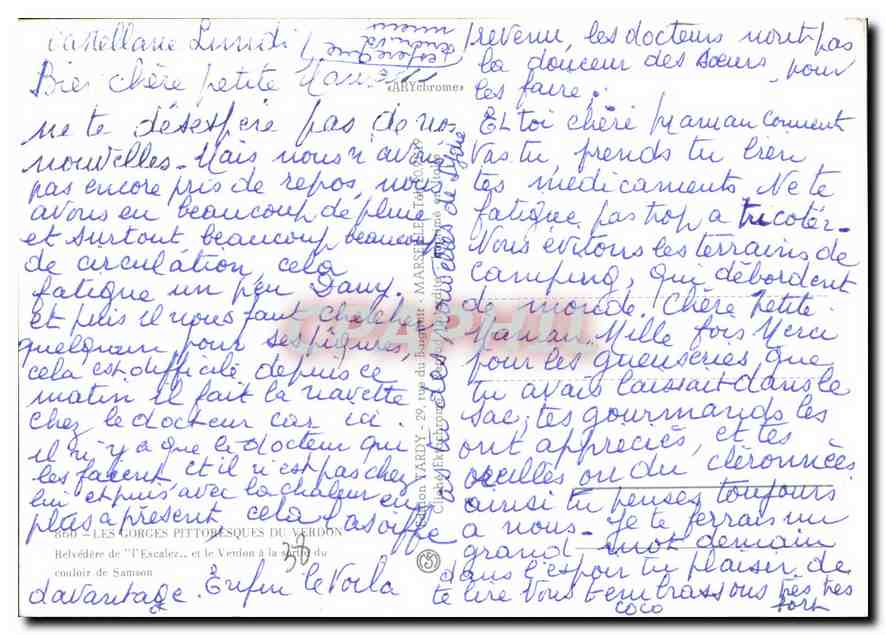 Castellane Lundi
j'espère que
Bien chère petite Maman
«ARYchrome»
ne te désespère pas de nos
nouvelles - Mais nous n'avons
pas encore pris de repos, nous
avons eu beaucoup de pluie
et surtout beaucoup beaucoup
de circulation, cela
fatigue un peu Dany.
et puis il nous faut chercher
quelquun pour ses piqures,
cela est difficile, depuis ce
matin il fait la navette
chez le docteur car ici
il n'y a que le docteur qui
les faisent et il n'est pas chez
lui et puis avec la chaleur en
plus a présent cela l'asouffe
860 - LES GORGES PITTORESQUES DU VERDON
Belvédère de "l'Escalez.. et le Verdon à la sortie du
couloir de Samson
38
davantage. Enfin le voila
as tu des nouvelles de
Edition YARDY - 29, rue du Baignoir - MARSEILLE - Tél.
revenu, les docteurs n'ont pas
la douceur des sœurs, pour
les faire.
Et toi chéri Maman comment
vas tu, prends tu bien
tes médicaments Ne te
fatigue pas trop a tricotér -
Nous évitons les terrains de
camping, qui débordent
de monde. Chère Petite
Maman. Mille fois Merci
pour les gueuseries, que
tu avais laissait dans le
sac; tes gourmands les
ont appréciés, et tes
oreilles ont du
ainsi tu penses toujours
a nous - Je te ferrais un
grand mot demain
dans l'espoir du plaisir de
te lire Nous t'embrassons très très
coco fort